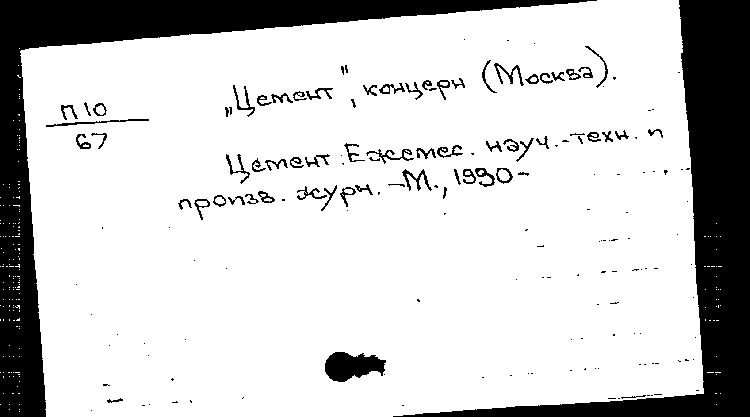 „Цемент", концерн (Москва).
П10
67
Цемент. Ежемес. науч.-техн. и
произв. журн. -М., 1990-